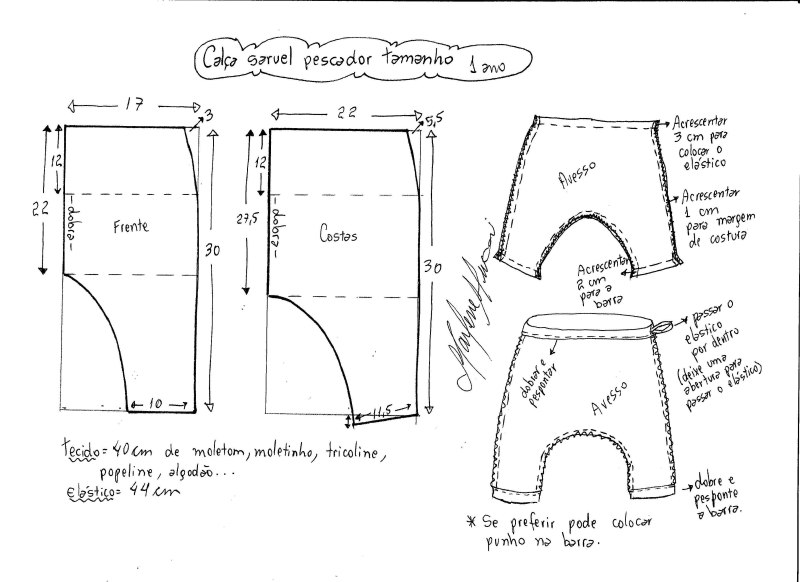 Calça saruel pescador tamanho 1 ano
17
3
12
22
-dobra-
Frente
30
10
22
5,5
12
27,5
-dobra-
Costas
30
11,5
tecido = 40 cm de moletom, moletinho, tricoline,
popeline, algodão...
elástico = 44 cm
Avesso
Acrescentar
3 cm para
colocar o
elástico
Acrescentar
1 cm
para margem
de costura
Acrescentar
2 cm
para a
barra
Marlene Mukai
passar o
elástico
por dentro
(deixe uma
abertura para
passar o elástico)
dobrar e
pespontar
Avesso
dobre e
pesponte
a barra.
* Se preferir pode colocar
punho na barra.